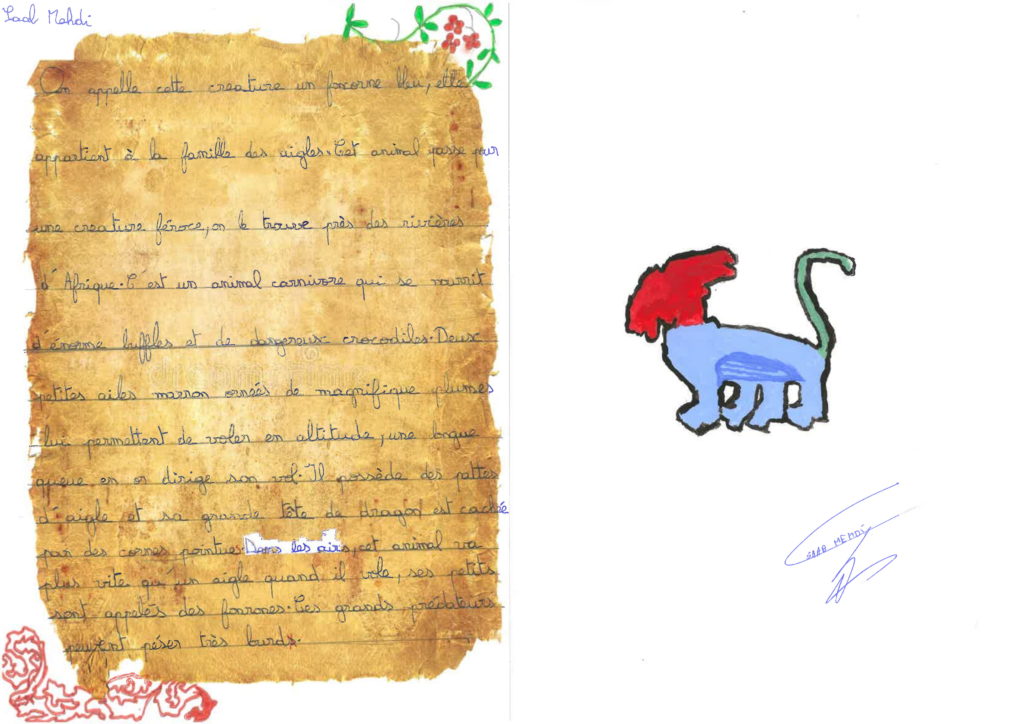 Saad Mehdi
On appelle cette creature un foncorne bleu, elle
appartient à la famille des aigles. Cet animal passe pour
une creature féroce, on le trouve près des rivières
d'Afrique. C'est un animal carnivore qui se nourrit
d'énorme buffles et de dangereux crocodiles. Deux
petites ailes marron ornéés de magnifique plumes
lui permettent de voler en altitude, une longue
queue en or dirige son vol. Il possède des pattes
d'aigle et sa grande tête de dragon est cachée
par des cornes pointues. Dans les airs, cet animal va
plus vite qu'un aigle quand il vole, ses petits
sont appelés des Ces grands prédateurs
peuvent péser très lourds.
SAAD MEHDI